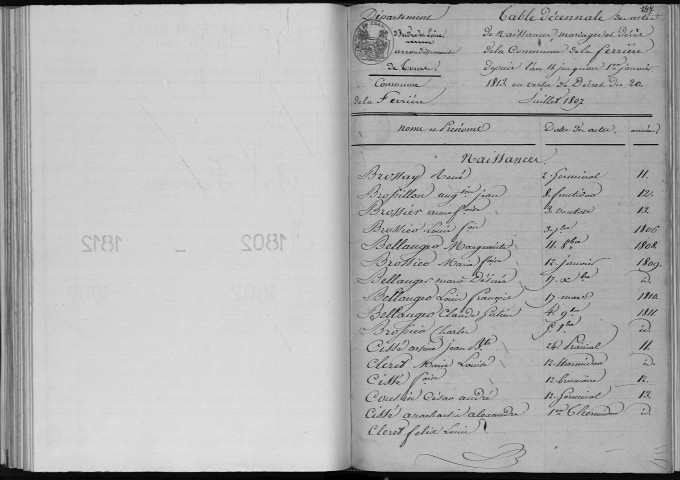 1802 - 1812
Département
d'Indre et Loire
arrondissement
de Tours
Commune
de la Ferrière
Table décennale des actes
de Naissances, mariages et décès
de la Commune de la ferrière
depuis l'an 11 jusqu'au 1er janvier
1813 en vertu du Décret du 20
Juillet 1807
247
noms et Prénoms Dates des actes années
Naissances
Brossay René 2 Germinal 11.
Brossillon aug.tin jean 8 fructidor 12.
Brossier anne f.oise 3 ventose 13.
Brossier Louis f.ois 3 9bre 1806
Bellanger Marguerite 11 1808.
Brossier Marie f.oise 12 janvier 1809.
Bellanger marie Désirée 17 Xbre id.
Bellanger Louis françois 17 mars 1810.
Bellanger Claude 4 9bre 1811.
Brossier Charles id.
Cissé jean B.te 24 Prairial 11.
Cleret Marie Louise 12 thermidor id.
Cissé f.oise 12 brumaire 12.
Cousin César andré 12 Germinal 13.
Cissé anacharsis alexandre 1er Thermidor id.
Cleret felix Louis